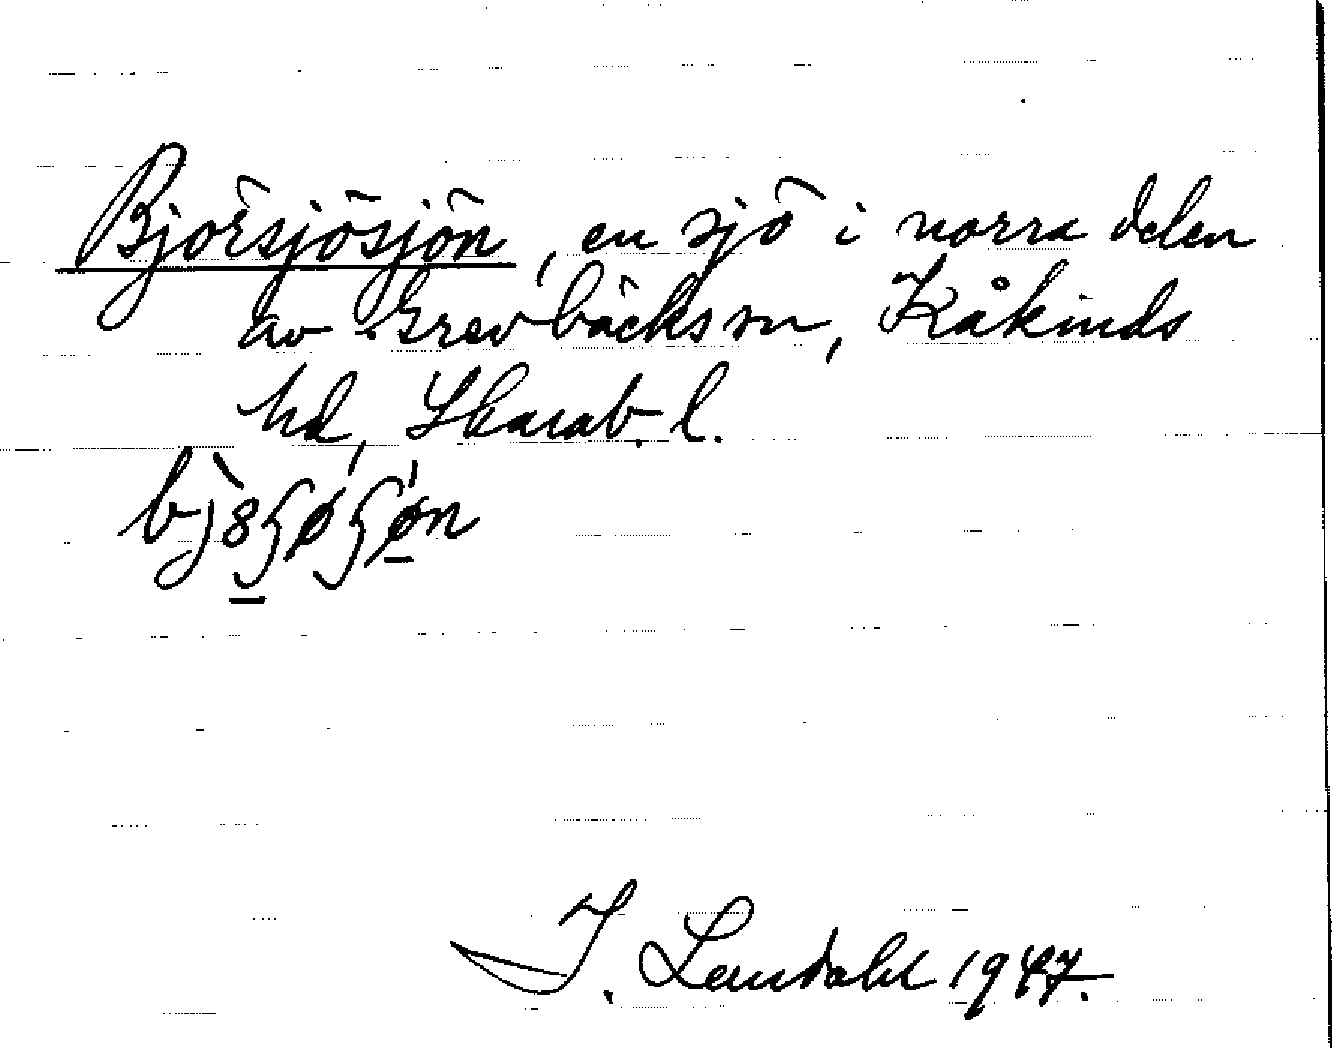 Björsjösjön, en sjö i norra delen
av Grevbäcks sn, Kåkinds
hd, Skarab. l.
I. Lundahl 1947.